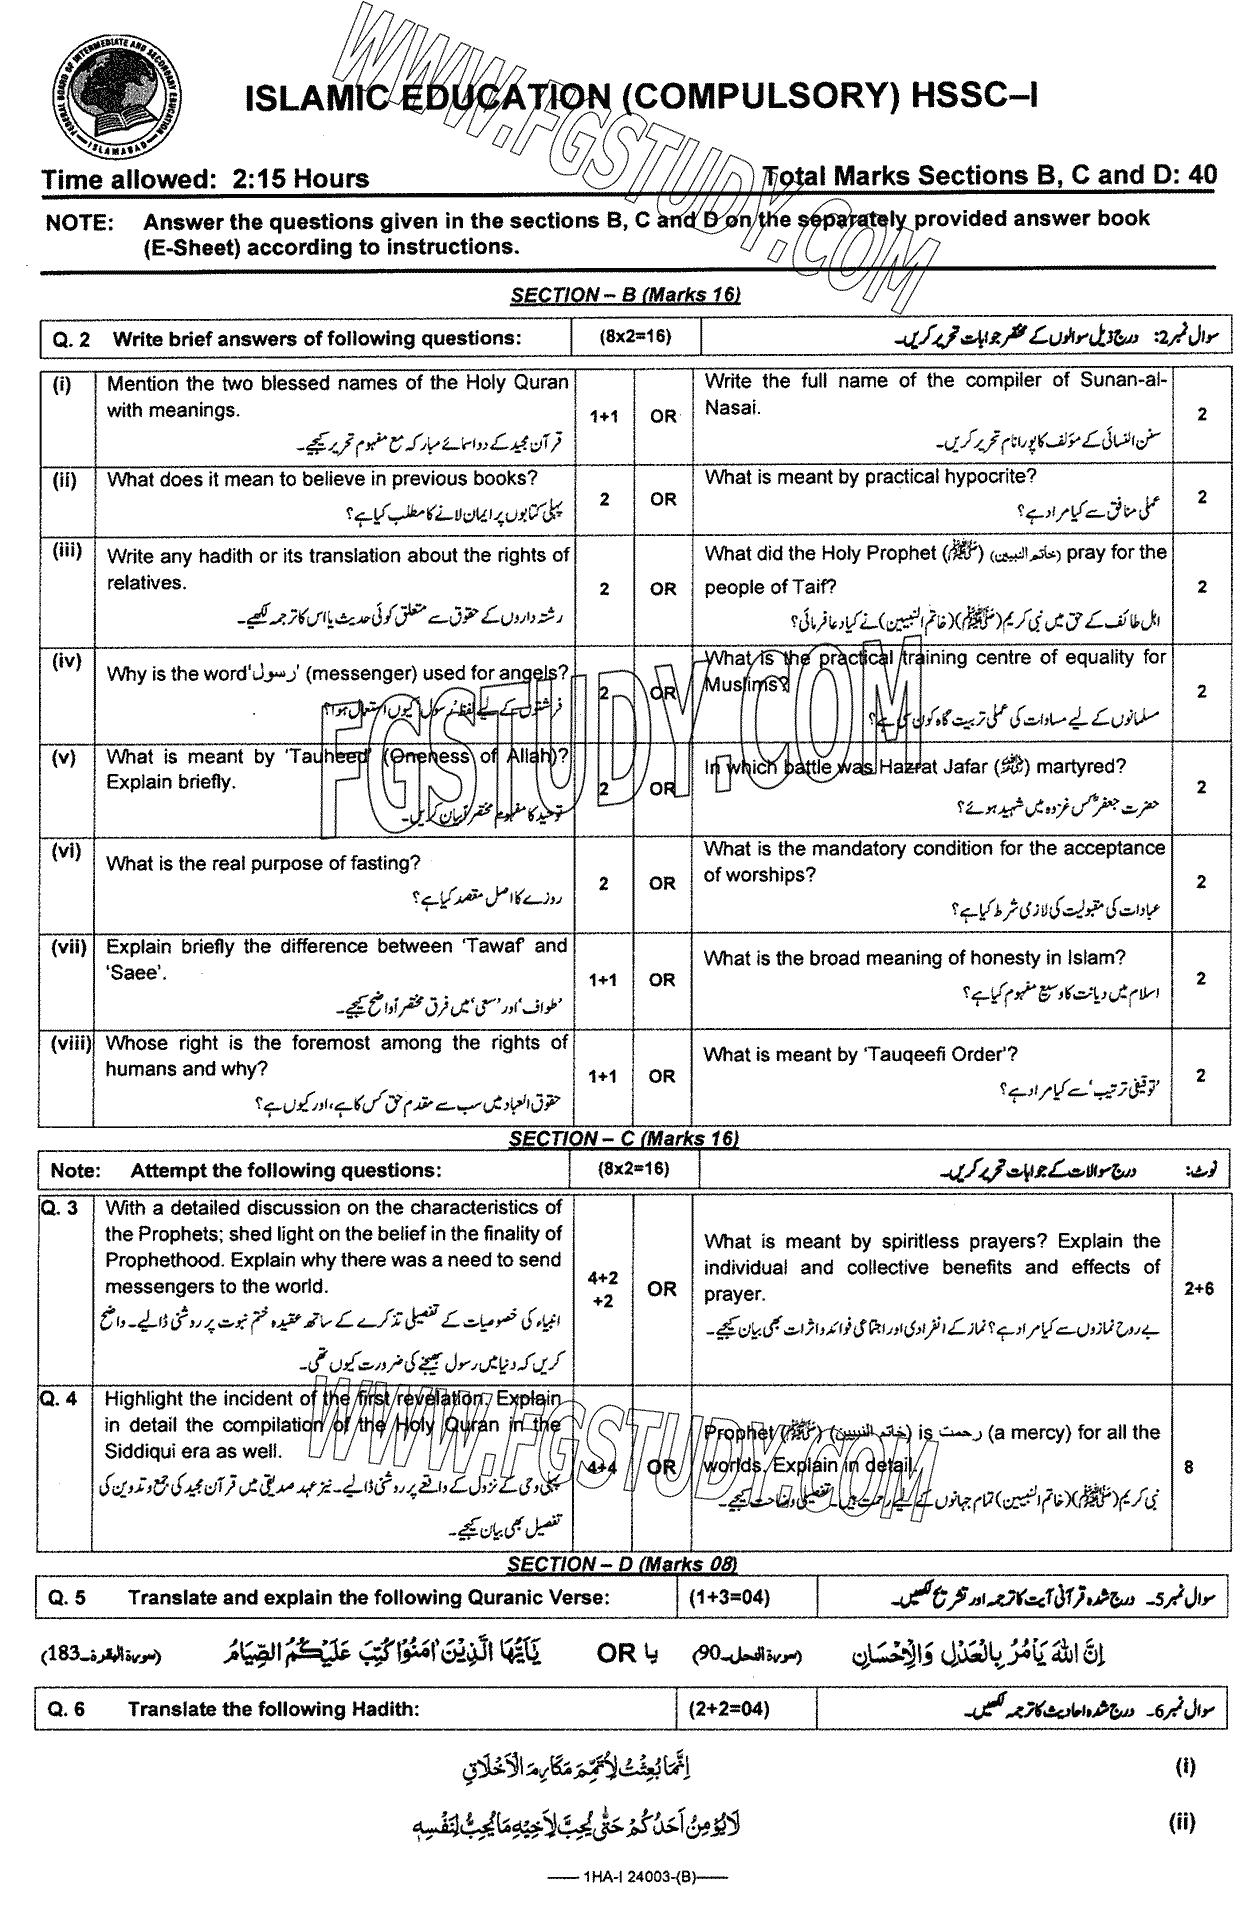 WWW.FGSTUDY.COM
FEDERAL BOARD OF INTERMEDIATE AND SECONDARY EDUCATION
ISLAMABAD
ISLAMIC EDUCATION (COMPULSORY) HSSC–I
Time allowed: 2:15 Hours
Total Marks Sections B, C and D: 40
NOTE: Answer the questions given in the sections B, C and D on the separately provided answer book
(E-Sheet) according to instructions.
SECTION – B (Marks 16)
Q. 2 Write brief answers of following questions: (8x2=16) سوال نمبر2: درج ذیل سوالوں کے مختصر جوابات تحریر کریں۔
(i) Mention the two blessed names of the Holy Quran
with meanings.
قرآن مجید کے دو اسمائے مبارکہ مع مفہوم تحریر کیجیے۔
1+1 OR
Write the full name of the compiler of Sunan-al-
Nasai.
سنن النسائی کے مؤلف کا پورا نام تحریر کریں۔
2
(ii) What does it mean to believe in previous books?
پہلی کتابوں پر ایمان لانے کا مطلب کیا ہے؟
2 OR
What is meant by practical hypocrite?
عملی منافق سے کیا مراد ہے؟
2
(iii) Write any hadith or its translation about the rights of
relatives.
رشتہ داروں کے حقوق سے متعلق کوئی حدیث یا اس کا ترجمہ لکھیے۔
2 OR
What did the Holy Prophet (ﷺ) (خاتم النبیین) pray for the
people of Taif?
اہل طائف کے حق میں نبی کریم (ﷺ)(خاتم النبیین) نے کیا دعا فرمائی؟
2
(iv) Why is the word 'رسول' (messenger) used for angels?
فرشتوں کے لیے لفظ 'رسول' کیوں استعمال ہوا؟
2 OR
What is the practical training centre of equality for
Muslims?
مسلمانوں کے لیے مساوات کی عملی تربیت گاہ کون سی ہے؟
2
(v) What is meant by 'Tauheed' (Oneness of Allah)?
Explain briefly.
توحید کا مفہوم مختصراً بیان کریں۔
2 OR
In which battle was Hazrat Jafar (رضی اللہ عنہ) martyred?
حضرت جعفرؓ کس غزوہ میں شہید ہوئے؟
2
FGSTUDY.COM
(vi) What is the real purpose of fasting?
روزے کا اصل مقصد کیا ہے؟
2 OR
What is the mandatory condition for the acceptance
of worships?
عبادات کی مقبولیت کی لازمی شرط کیا ہے؟
2
(vii) Explain briefly the difference between 'Tawaf' and
'Saee'.
'طواف' اور 'سعی' میں فرق مختصراً واضح کیجیے۔
1+1 OR
What is the broad meaning of honesty in Islam?
اسلام میں دیانت کا وسیع مفہوم کیا ہے؟
2
(viii) Whose right is the foremost among the rights of
humans and why?
حقوق العباد میں سب سے مقدم حق کس کا ہے، اور کیوں ہے؟
1+1 OR
What is meant by 'Tauqeefi Order'?
'توقیفی ترتیب' سے کیا مراد ہے؟
2
SECTION – C (Marks 16)
Note: Attempt the following questions: (8x2=16) نوٹ: درج سوالات کے جوابات تحریر کریں۔
Q. 3 With a detailed discussion on the characteristics of
the Prophets; shed light on the belief in the finality of
Prophethood. Explain why there was a need to send
messengers to the world.
انبیاء کی خصوصیات کے تفصیلی تذکرے کے ساتھ عقیدہ ختم نبوت پر روشنی ڈالیے۔ واضح
کریں کہ دنیا میں رسول بھیجنے کی ضرورت کیوں تھی۔
4+2
+2
OR
What is meant by spiritless prayers? Explain the
individual and collective benefits and effects of
prayer.
بے روح نمازوں سے کیا مراد ہے؟ نماز کے انفرادی اور اجتماعی فوائد و اثرات بھی بیان کیجیے۔
2+6
Q. 4 Highlight the incident of the first revelation. Explain
in detail the compilation of the Holy Quran in the
Siddiqui era as well.
پہلی وحی کے نزول کے واقعے پر روشنی ڈالیے۔ نیز عہد صدیقی میں قرآن مجید کی جمع و تدوین کی
تفصیل بھی بیان کیجیے۔
4+4 OR
Prophet (ﷺ) (خاتم النبیین) is رحمت (a mercy) for all the
worlds. Explain in detail.
نبی کریم (ﷺ)(خاتم النبیین) تمام جہانوں کے لیے رحمت ہیں۔ تفصیلی وضاحت کیجیے۔
8
WWW.FGSTUDY.COM
SECTION – D (Marks 08)
Q. 5 Translate and explain the following Quranic Verse: (1+3=04) سوال نمبر5۔ درج شدہ قرآنی آیت کا ترجمہ اور تشریح لکھیں۔
اِنَّ اللّٰهَ يَأمُرُ بِالْعَدْلِ وَالْاِحْسَانِ (سورۃ النحل۔90) OR یا يٰٓاَيُّهَا الَّذِيْنَ اٰمَنُوْا كُتِبَ عَلَيْكُمُ الصِّيَامُ (سورۃ البقرۃ۔183)
Q. 6 Translate the following Hadith: (2+2=04) سوال نمبر6۔ درج شدہ احادیث کا ترجمہ لکھیں۔
(i) اِنَّمَا بُعِثْتُ لِاُتَمِّمَ مَكَارِمَ الْاَخْلَاقِ
(ii) لَا يُؤْمِنُ اَحَدُكُمْ حَتّٰى يُحِبَّ لِاَخِيْهِ مَا يُحِبُّ لِنَفْسِهٖ
—— 1HA-I 24003-(B)——